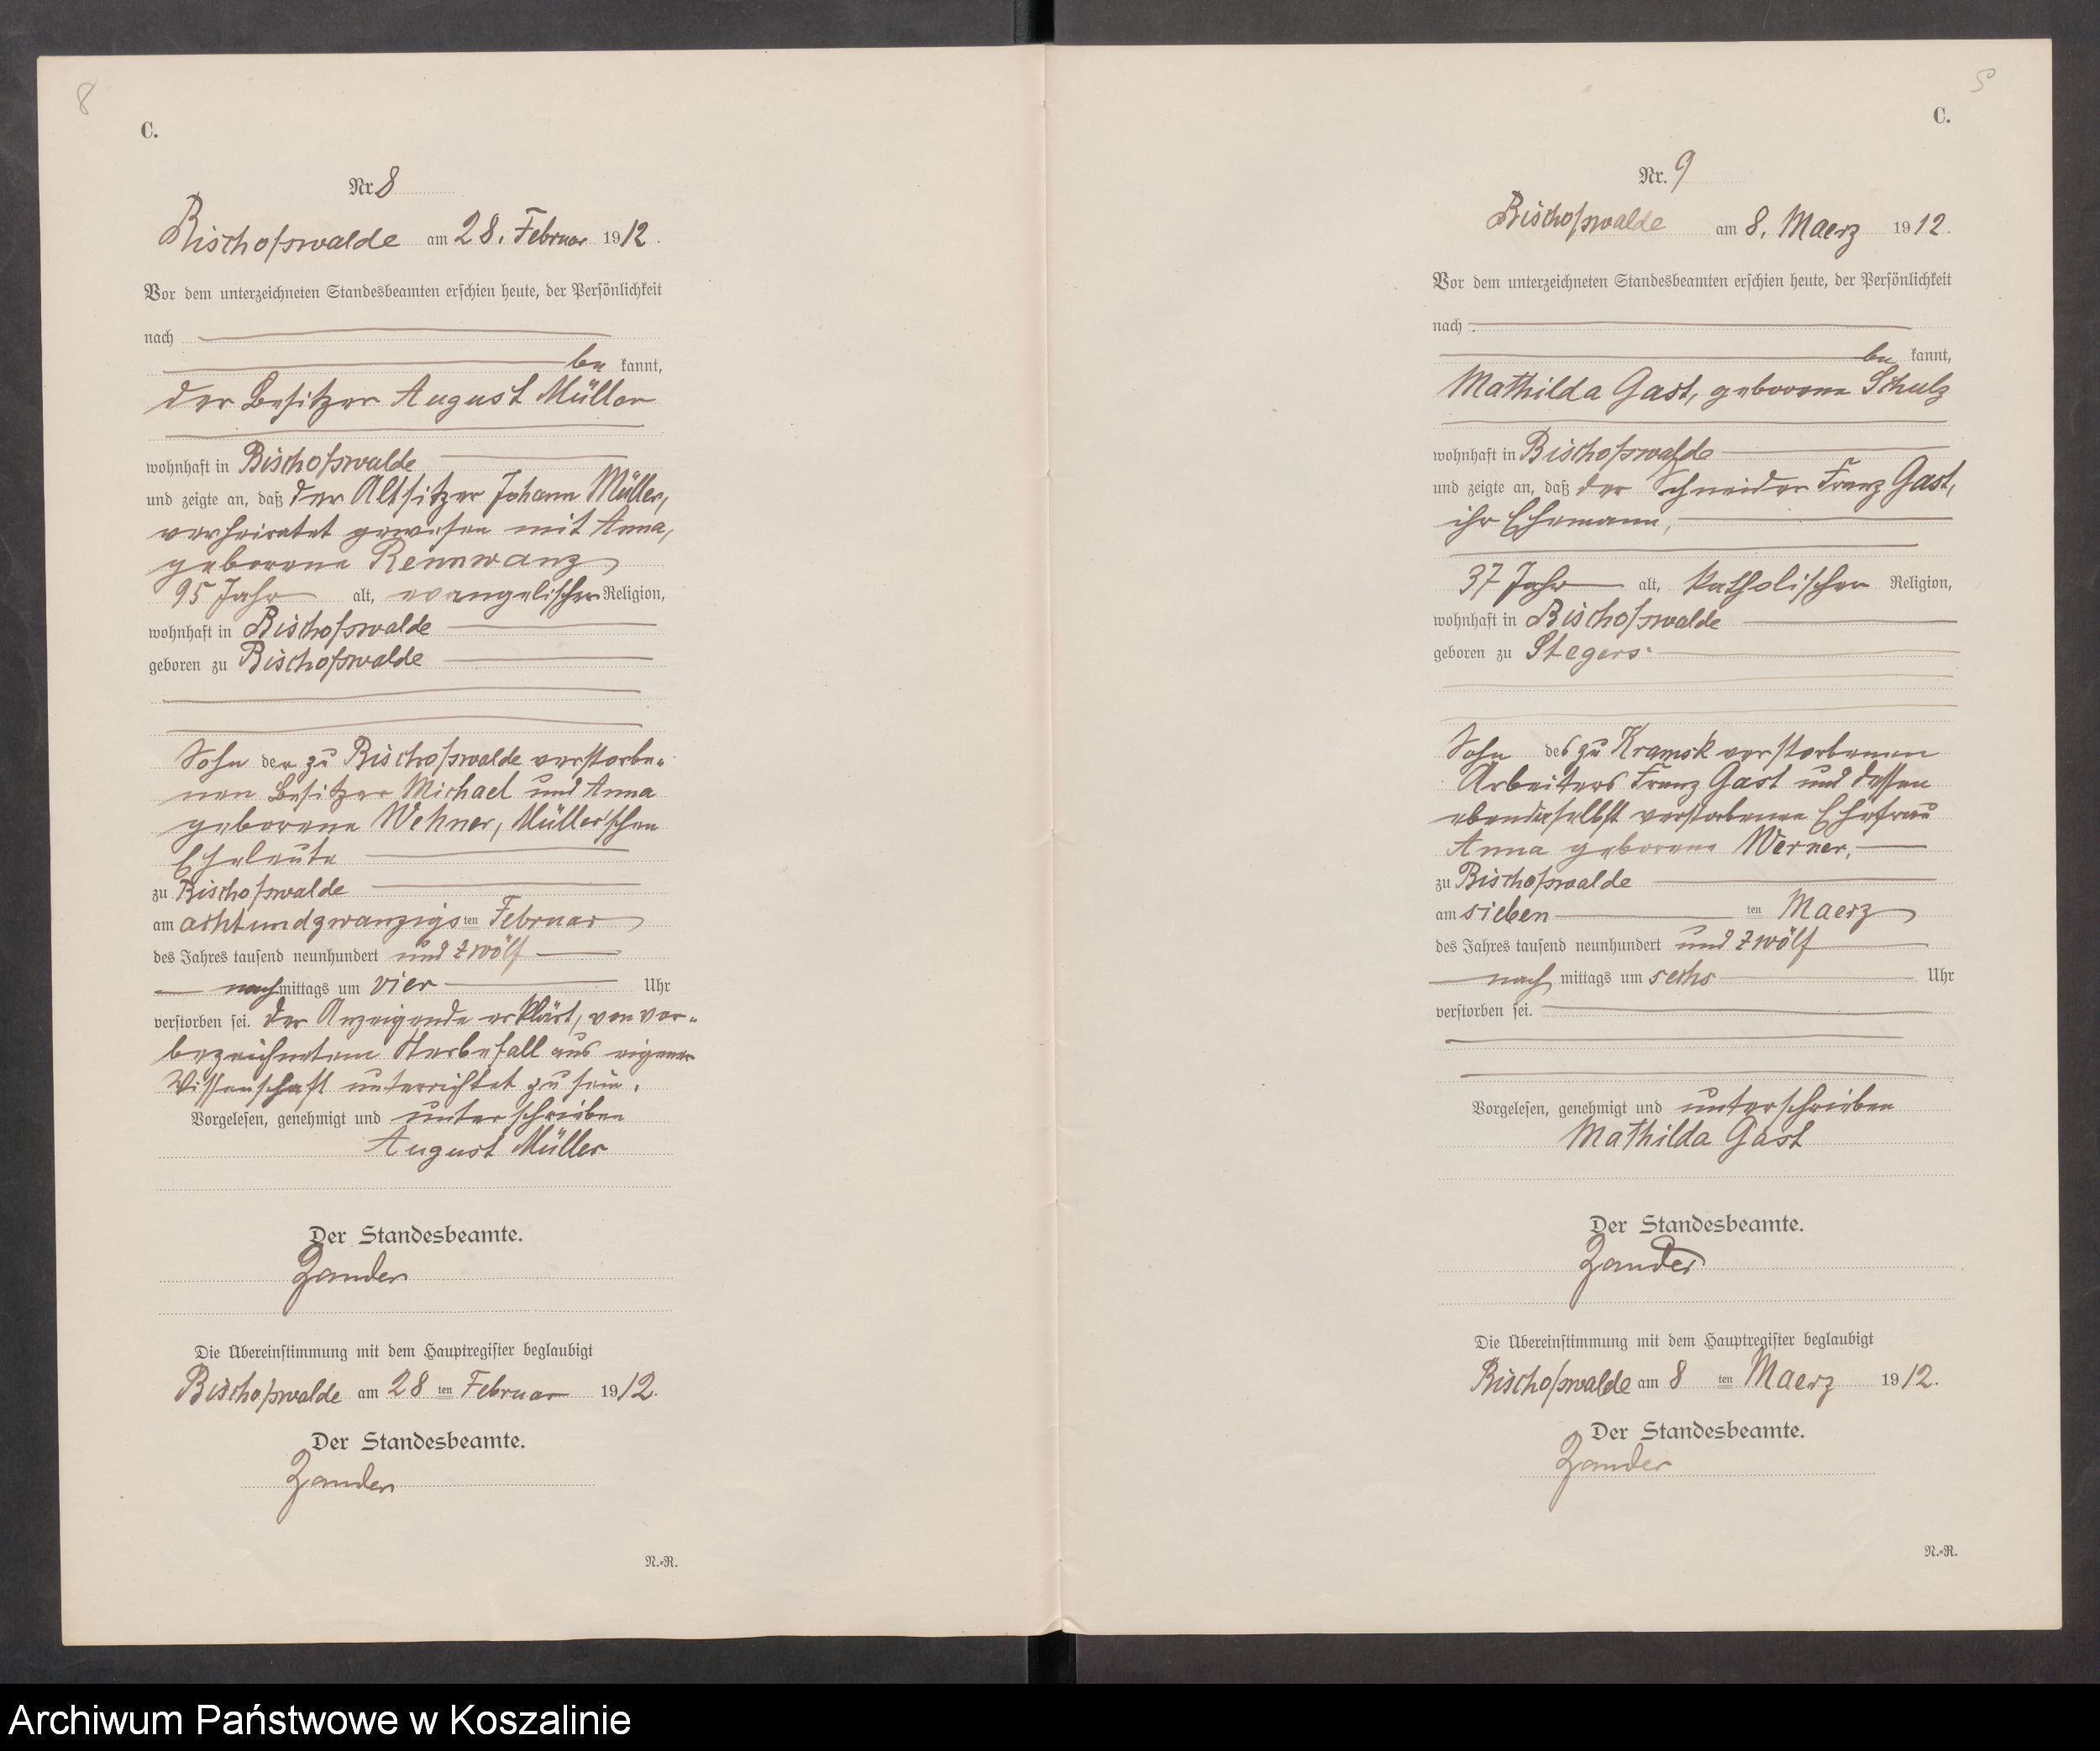 8
C.
Nr. 8
Bischofswalde am 28. Februar 1912.
Vor dem unterzeichneten Standesbeamten erschien heute, der Persönlichkeit
nach
be kannt,
der Besitzer August Müller
wohnhaft in Bischofswalde
und zeigte an, daß der Altsitzer Johann Müller,
verheiratet gewesen mit Anna,
geborene Rennwanz
95 Jahr alt, evangelischer Religion,
wohnhaft in Bischofswalde
geboren zu Bischofswalde
Sohn der zu Bischofswalde verstorbe-
nen Besitzer Michael und Anna
geborene Wehner, Müller'schen
Eheleute
zu Bischofswalde
am achtundzwanzigsten Februar
des Jahres tausend neunhundert und zwölf
nachmittags um vier Uhr
verstorben sei. Der Anzeigende erklärt, von vor-
bezeichnetem Sterbefall aus eigener
Wissenschaft unterrichtet zu sein.
Vorgelesen, genehmigt und unterschrieben
August Müller
Der Standesbeamte.
Zander
Die Übereinstimmung mit dem Hauptregister beglaubigt
Bischofswalde am 28 ten Februar 1912.
Der Standesbeamte.
Zander
N.-R.
C.
Nr. 9
Bischofswalde am 8. Maerz 1912.
Vor dem unterzeichneten Standesbeamten erschien heute, der Persönlichkeit
nach
be kannt,
Mathilda Gast, geborene Schulz
wohnhaft in Bischofswalde
und zeigte an, daß der Schneider Franz Gast,
ihr Ehemann,
37 Jahr alt, katholischer Religion,
wohnhaft in Bischofswalde
geboren zu Stegers
Sohn des zu Kramsk verstorbenen
Arbeiters Franz Gast und dessen
ebendaselbst verstorbenen Ehefrau
Anna geborene Werner,
zu Bischofswalde
am sieben ten Maerz
des Jahres tausend neunhundert und zwölf
nach mittags um sechs Uhr
verstorben sei.
Vorgelesen, genehmigt und unterschrieben
Mathilda Gast
Der Standesbeamte.
Zander
Die Übereinstimmung mit dem Hauptregister beglaubigt
Bischofswalde am 8 ten Maerz 1912.
Der Standesbeamte.
Zander
N.-R.
Archiwum Państwowe w Koszalinie